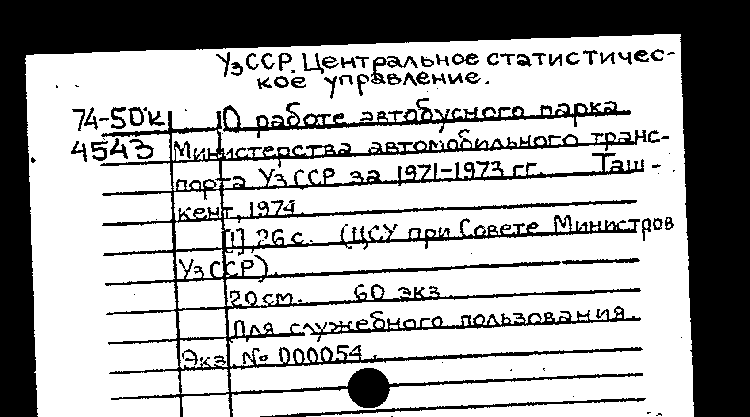 УзССР. Центральное статистичес-
кое управление.
74-50к О работе автобусного парка
4543 Министерства автомобильного транс-
порта УзССР за 1971-1973 гг. Таш-
кент, 1974.
[1] 26 с. (ЦСУ при Совете Министров
УзССР).
20 см. 60 экз.
Для служебного пользования.
Экз. № 000054.